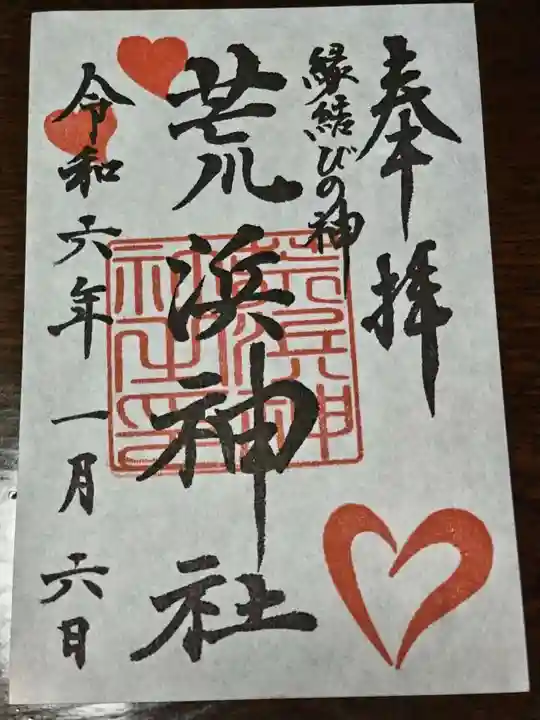 奉拝
縁結びの神
荒浜神社
令和六年一月六日
荒浜神社之印